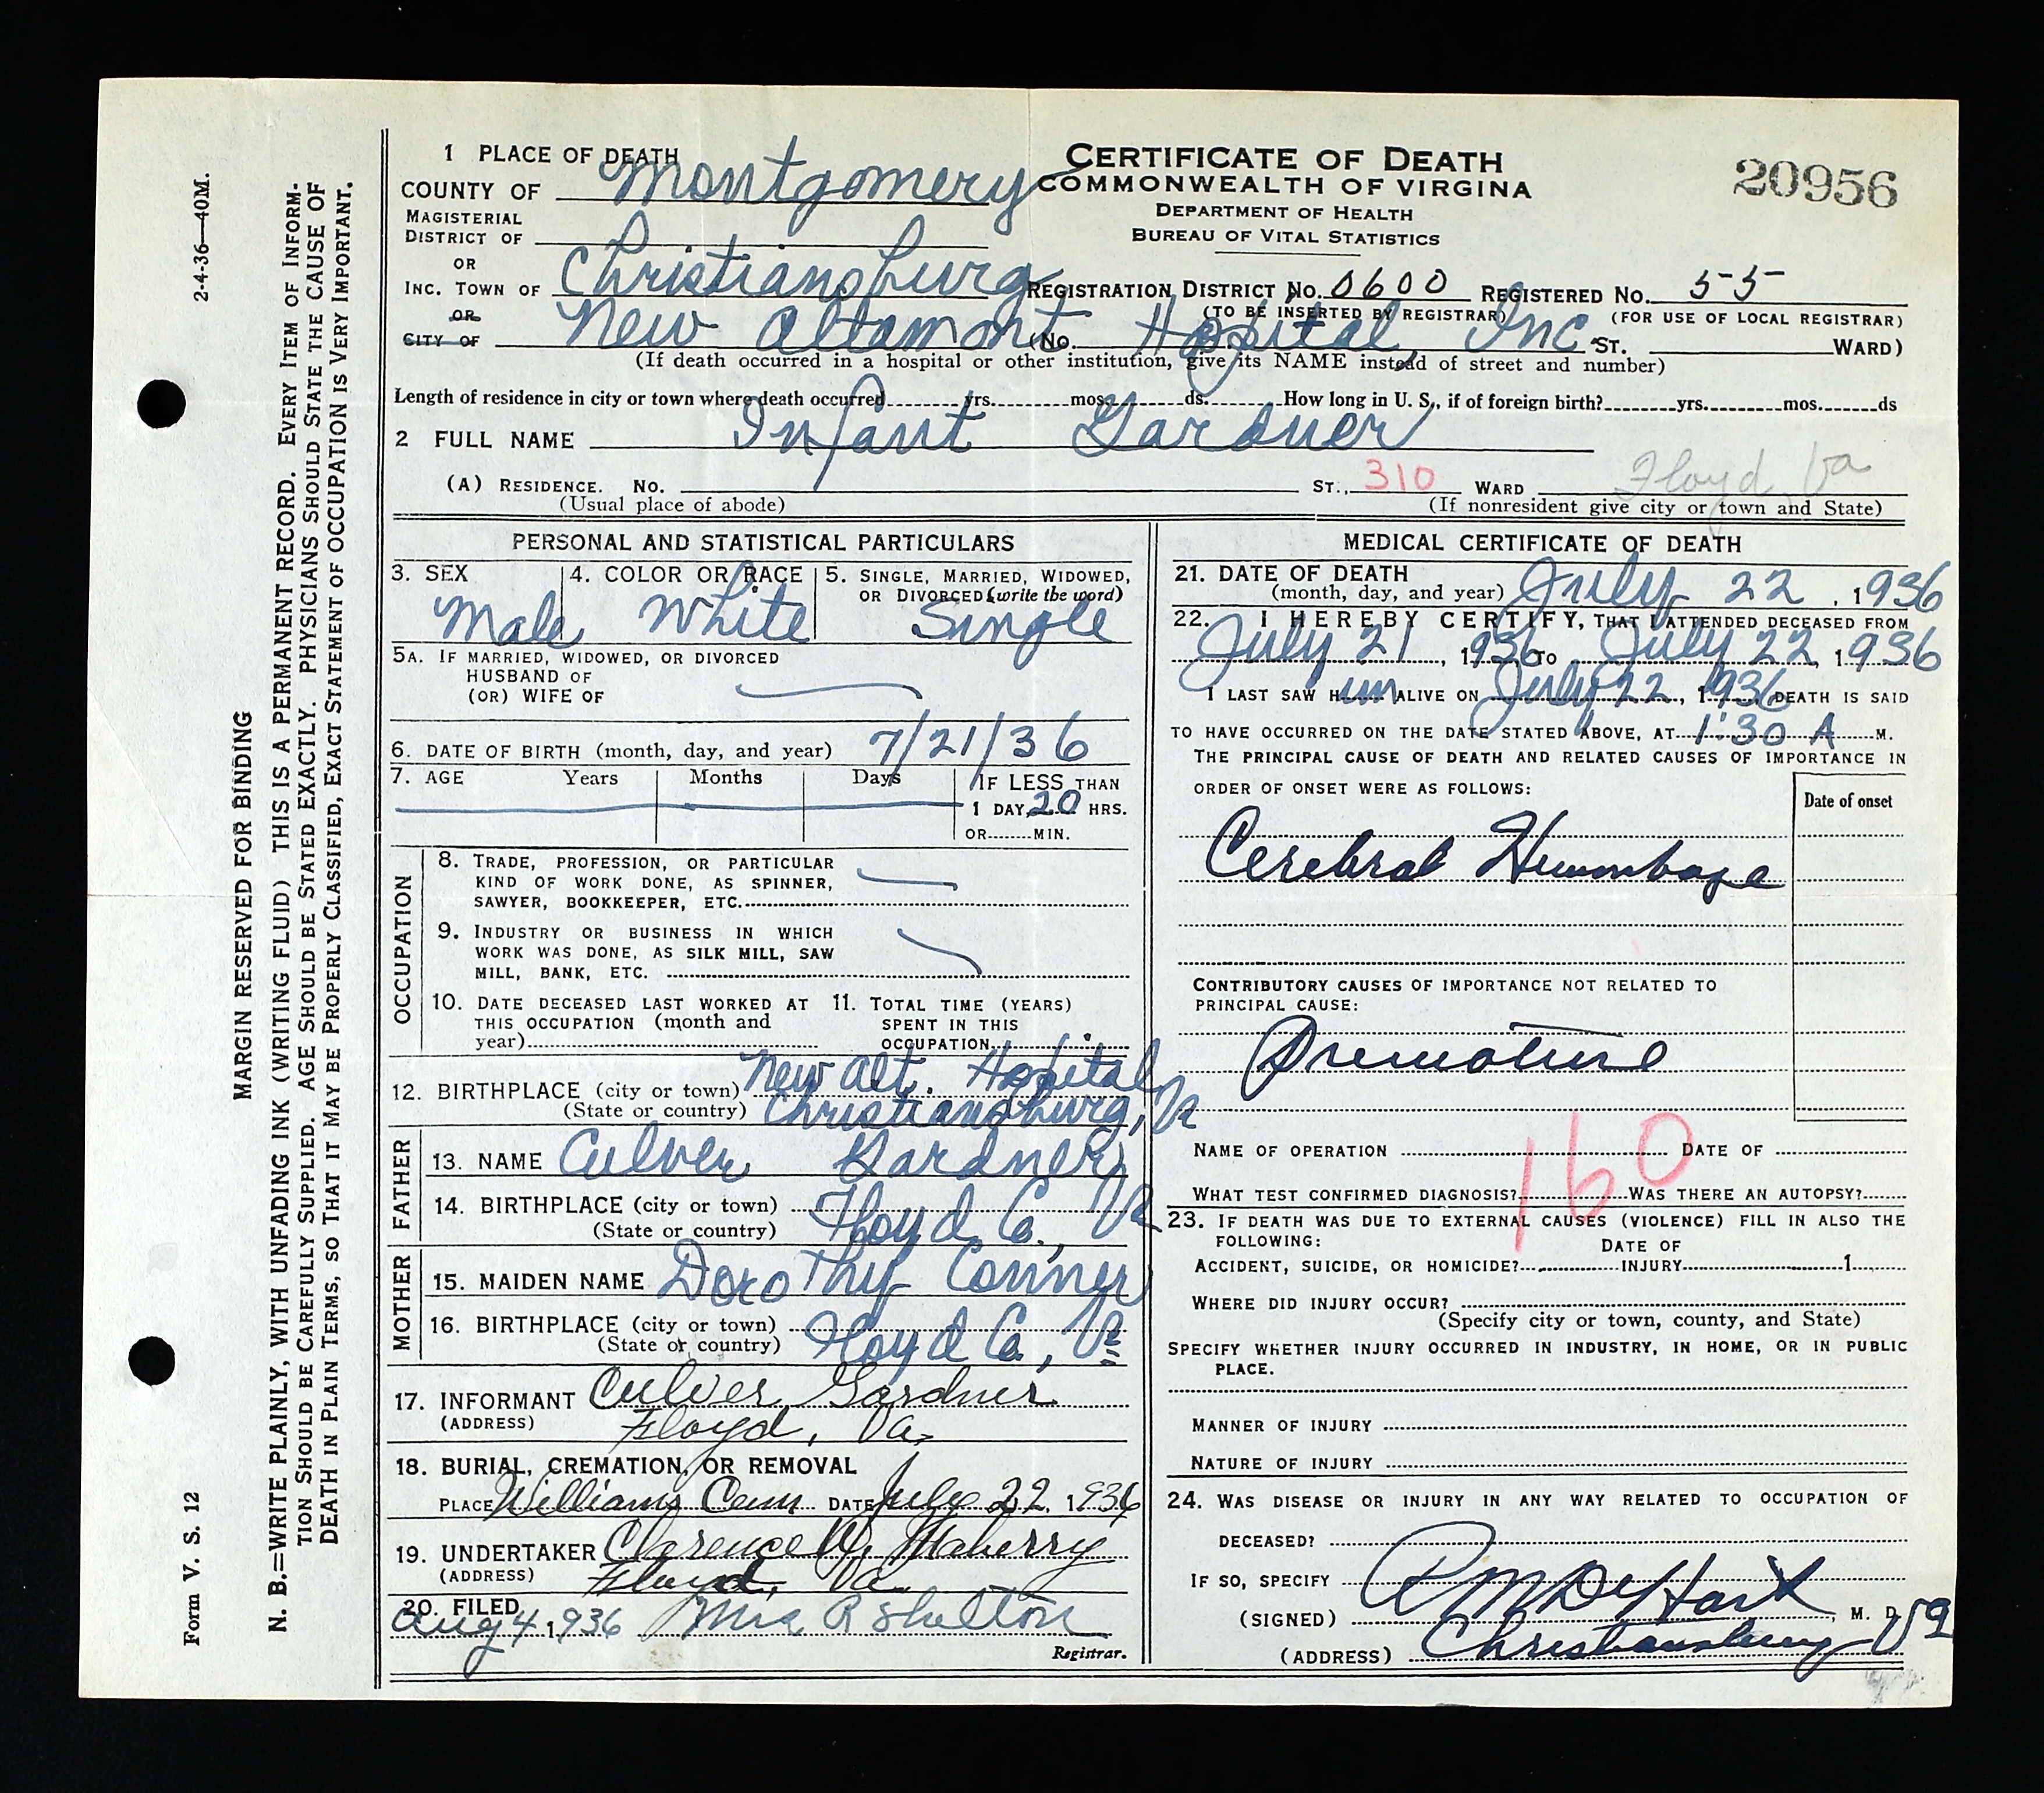 CERTIFICATE OF DEATH
COMMONWEALTH OF VIRGINA
DEPARTMENT OF HEALTH
BUREAU OF VITAL STATISTICS
20956
1 PLACE OF DEATH
COUNTY OF Montgomery
MAGISTERIAL DISTRICT OF
OR
INC. TOWN OF Christiansburg
REGISTRATION DISTRICT NO. 0600 REGISTERED NO. 55
(TO BE INSERTED BY REGISTRAR) (FOR USE OF LOCAL REGISTRAR)
OR
CITY OF New Altamont (No. Hospital, Inc ST. WARD)
(If death occurred in a hospital or other institution, give its NAME instead of street and number)
Length of residence in city or town where death occurred yrs. mos. ds. How long in U. S., if of foreign birth? yrs. mos. ds
2 FULL NAME Infant Gardner
(A) RESIDENCE. NO. ST., 310 WARD Floyd, Va
(Usual place of abode) (If nonresident give city or town and State)
PERSONAL AND STATISTICAL PARTICULARS
3. SEX Male
4. COLOR OR RACE White
5. SINGLE, MARRIED, WIDOWED, OR DIVORCED (write the word) Single
5A. IF MARRIED, WIDOWED, OR DIVORCED
HUSBAND OF
(OR) WIFE OF
6. DATE OF BIRTH (month, day, and year) 7/21/36
7. AGE Years Months Days IF LESS THAN
1 DAY, 20 HRS.
OR MIN.
OCCUPATION
8. TRADE, PROFESSION, OR PARTICULAR
KIND OF WORK DONE, AS SPINNER,
SAWYER, BOOKKEEPER, ETC.
9. INDUSTRY OR BUSINESS IN WHICH
WORK WAS DONE, AS SILK MILL, SAW
MILL, BANK, ETC.
10. DATE DECEASED LAST WORKED AT
THIS OCCUPATION (month and
year)
11. TOTAL TIME (YEARS)
SPENT IN THIS
OCCUPATION
12. BIRTHPLACE (city or town) New Alt. Hospital
(State or country) Christiansburg, Va
FATHER
13. NAME Culver Gardner
14. BIRTHPLACE (city or town)
(State or country) Floyd Co., Va
MOTHER
15. MAIDEN NAME Dorothy Conner
16. BIRTHPLACE (city or town)
(State or country) Floyd Co, Va
17. INFORMANT Culver Gardner
(ADDRESS) Floyd, Va.
18. BURIAL, CREMATION, OR REMOVAL
PLACE Williams Cem DATE July 22, 1936
19. UNDERTAKER Clarence W. Maberry
(ADDRESS) Floyd, Va
20. FILED
Aug 4 1936 Mrs R Shelton
Registrar.
MEDICAL CERTIFICATE OF DEATH
21. DATE OF DEATH
(month, day, and year) July 22, 1936
22. I HEREBY CERTIFY, THAT I ATTENDED DECEASED FROM
July 21, 1936 TO July 22, 1936
I LAST SAW H im ALIVE ON July 22, 1936 DEATH IS SAID
TO HAVE OCCURRED ON THE DATE STATED ABOVE, AT 1:30 A M.
THE PRINCIPAL CAUSE OF DEATH AND RELATED CAUSES OF IMPORTANCE IN
ORDER OF ONSET WERE AS FOLLOWS:
Date of onset
Cerebral Hemorrhage
CONTRIBUTORY CAUSES OF IMPORTANCE NOT RELATED TO
PRINCIPAL CAUSE:
Premature
160
NAME OF OPERATION DATE OF
WHAT TEST CONFIRMED DIAGNOSIS? WAS THERE AN AUTOPSY?
23. IF DEATH WAS DUE TO EXTERNAL CAUSES (VIOLENCE) FILL IN ALSO THE
FOLLOWING:
DATE OF
ACCIDENT, SUICIDE, OR HOMICIDE? INJURY 1
WHERE DID INJURY OCCUR?
(Specify city or town, county, and State)
SPECIFY WHETHER INJURY OCCURRED IN INDUSTRY, IN HOME, OR IN PUBLIC
PLACE.
MANNER OF INJURY
NATURE OF INJURY
24. WAS DISEASE OR INJURY IN ANY WAY RELATED TO OCCUPATION OF
DECEASED?
IF SO, SPECIFY
(SIGNED) R M DeHart M. D.
(ADDRESS) Christiansburg Va
2-4-36—40M.
MARGIN RESERVED FOR BINDING
N. B.=WRITE PLAINLY, WITH UNFADING INK (WRITING FLUID) THIS IS A PERMANENT RECORD. EVERY ITEM OF INFORM-
TION SHOULD BE CAREFULLY SUPPLIED. AGE SHOULD BE STATED EXACTLY. PHYSICIANS SHOULD STATE THE CAUSE OF
DEATH IN PLAIN TERMS, SO THAT IT MAY BE PROPERLY CLASSIFIED, EXACT STATEMENT OF OCCUPATION IS VERY IMPORTANT.
Form V. S. 12